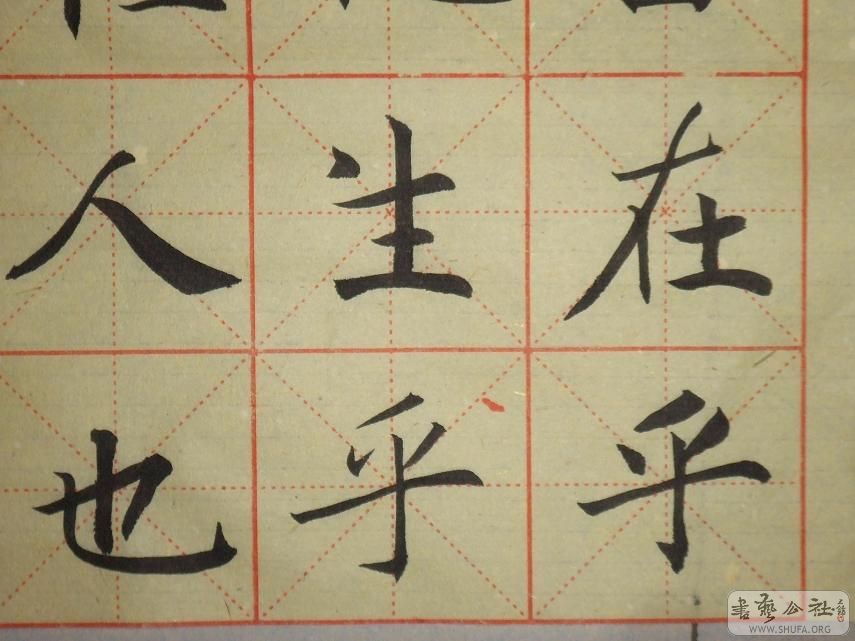 在乎
生乎
人也
書藝公社
WWW.SHUFA.ORG